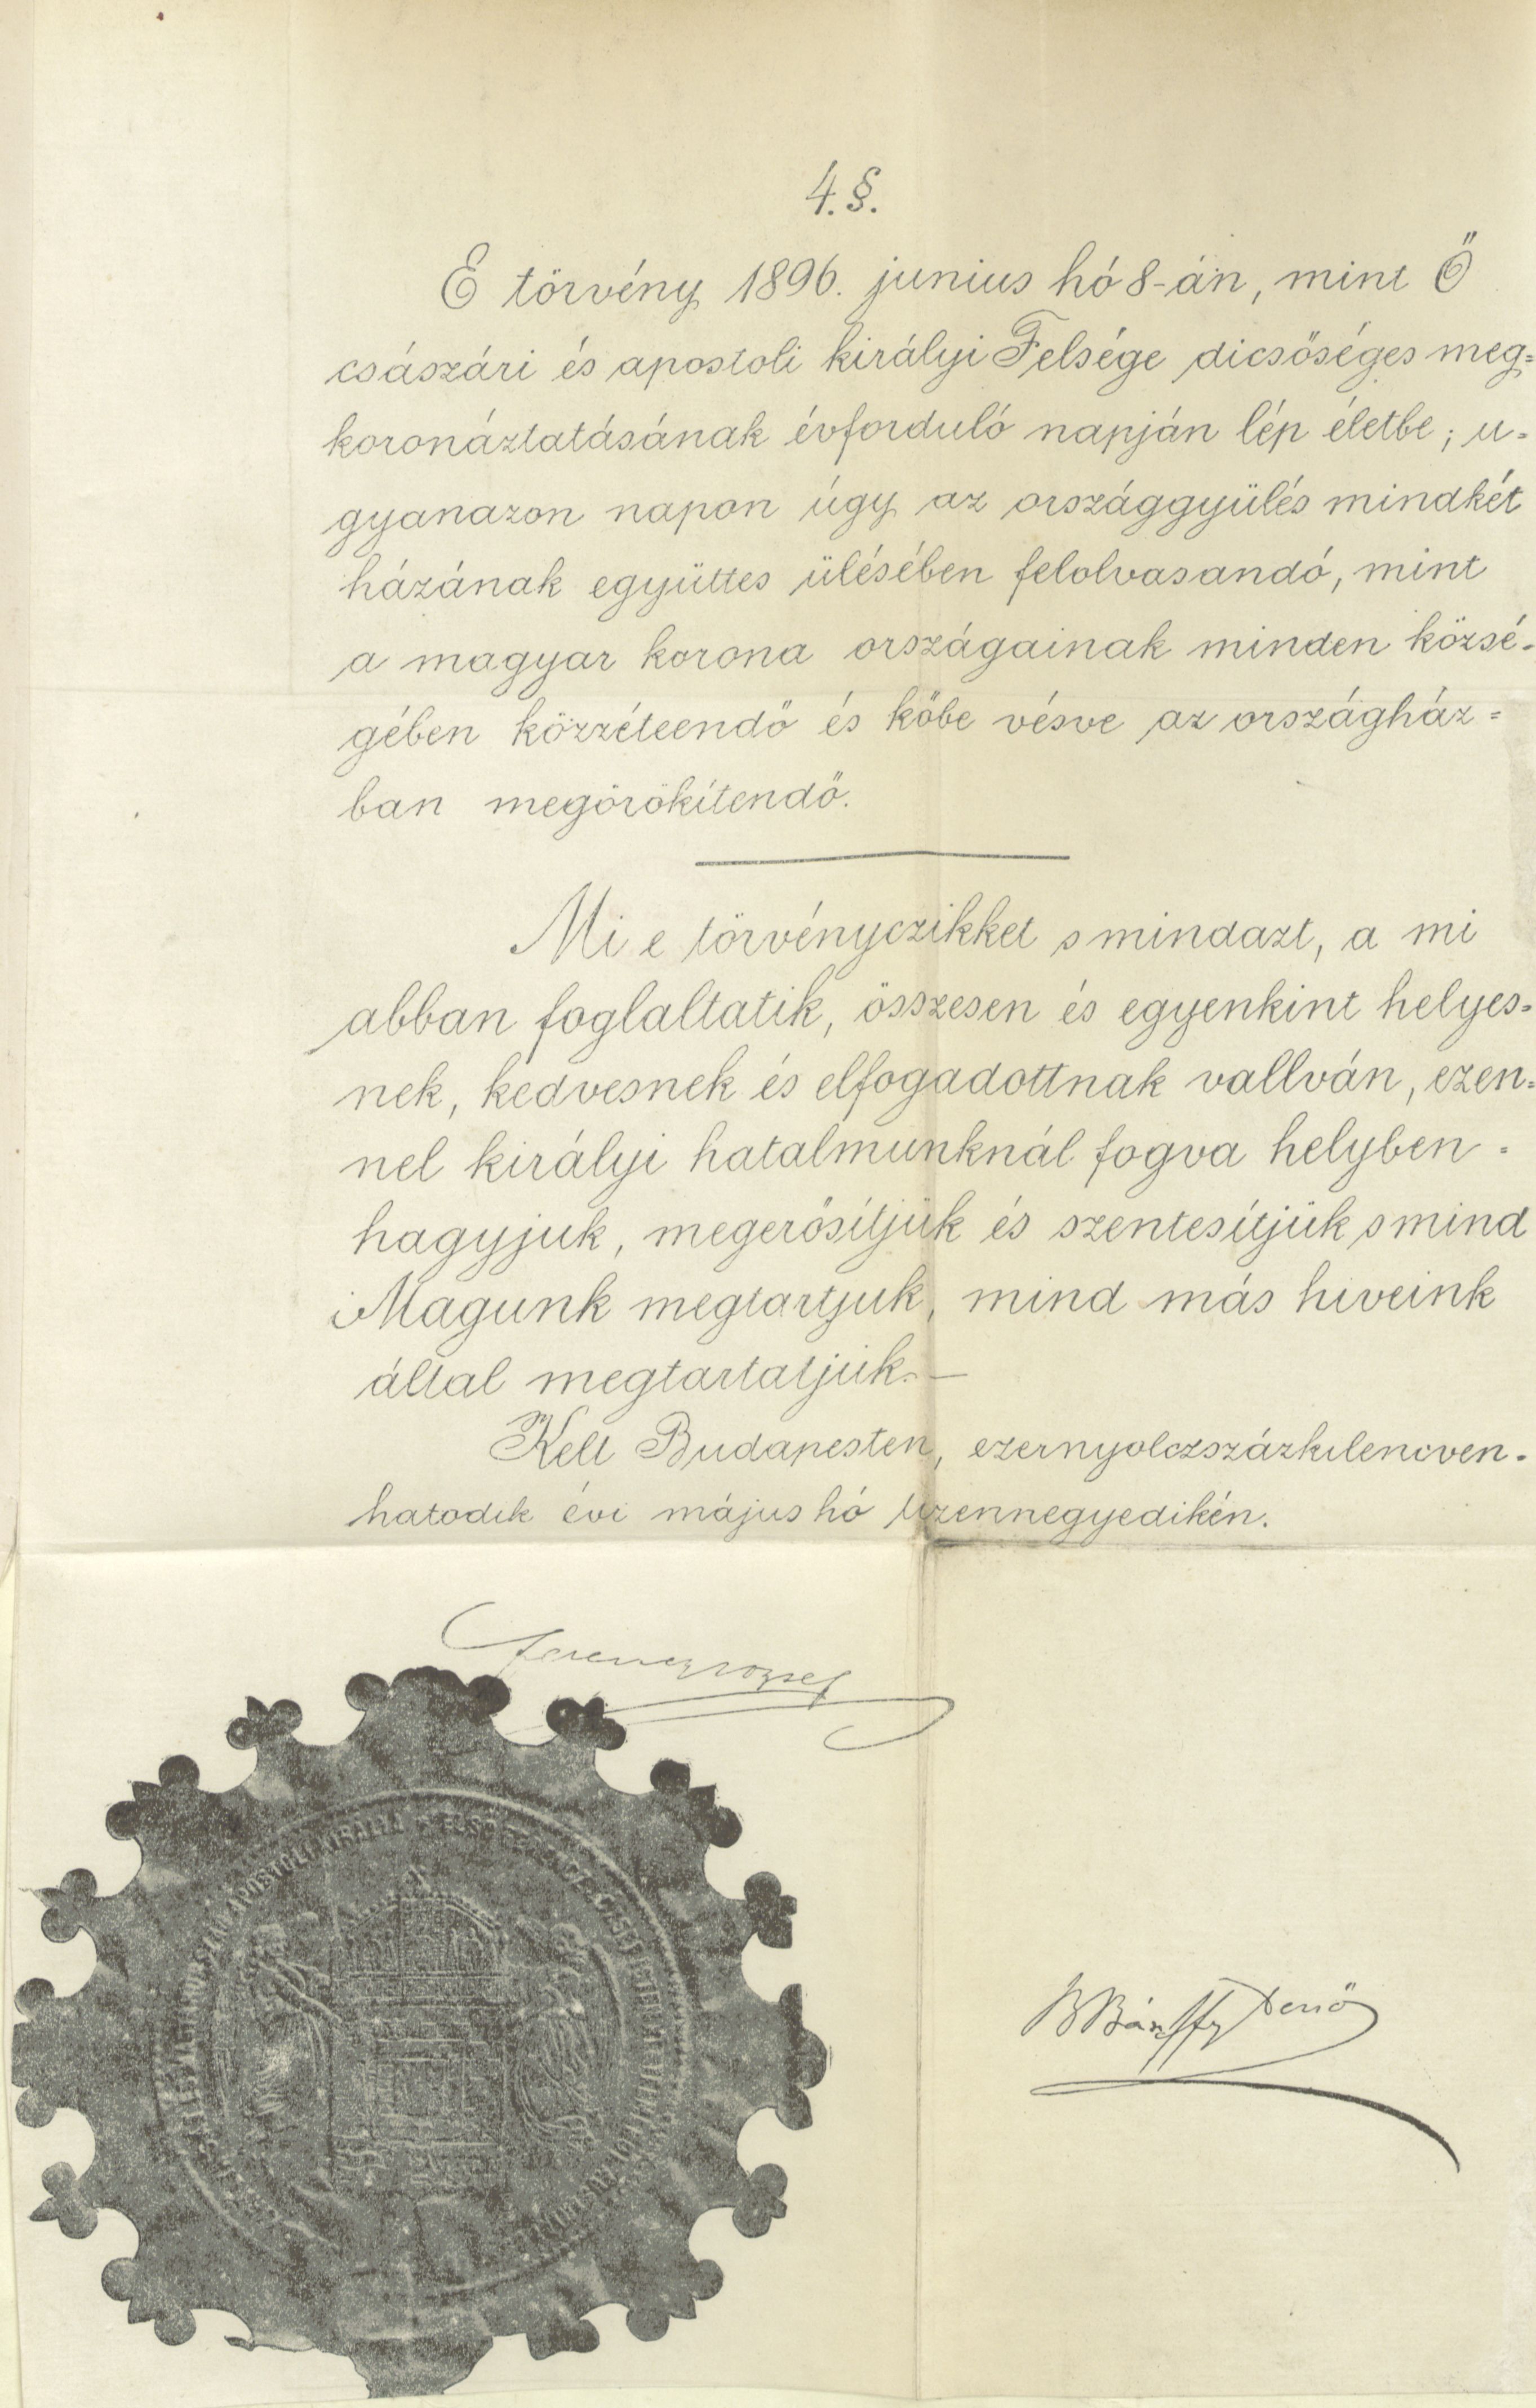 4. §.
E törvény 1896. junius hó 8-án, mint Ő
császári és apostoli királyi Felsége dicsőséges meg=
koronáztatásának évforduló napján lép életbe; u-
gyanazon napon úgy az országgyülés mindkét
házának együttes ülésében felolvasandó, mint
a magyar korona országainak minden közsé-
gében közzéteendő és kőbe vésve az országház=
ban megörökítendő.
Mi e törvényczikket s mindazt, a mi
abban foglaltatik, összesen és egyenkint helyes=
nek, kedvesnek és elfogadottnak vallván, ezen=
nel királyi hatalmunknál fogva helyben-
hagyjuk, megerősítjük és szentesítjük s mind
Magunk megtartjuk, mind más hiveink
által megtartatjuk.—
Kelt Budapesten, ezernyolczszázkilenczven-
hatodik évi május hó tizennegyedikén.
Ferencz József
B Bánffy Dezső
APOSTOLI KIRÁLYA